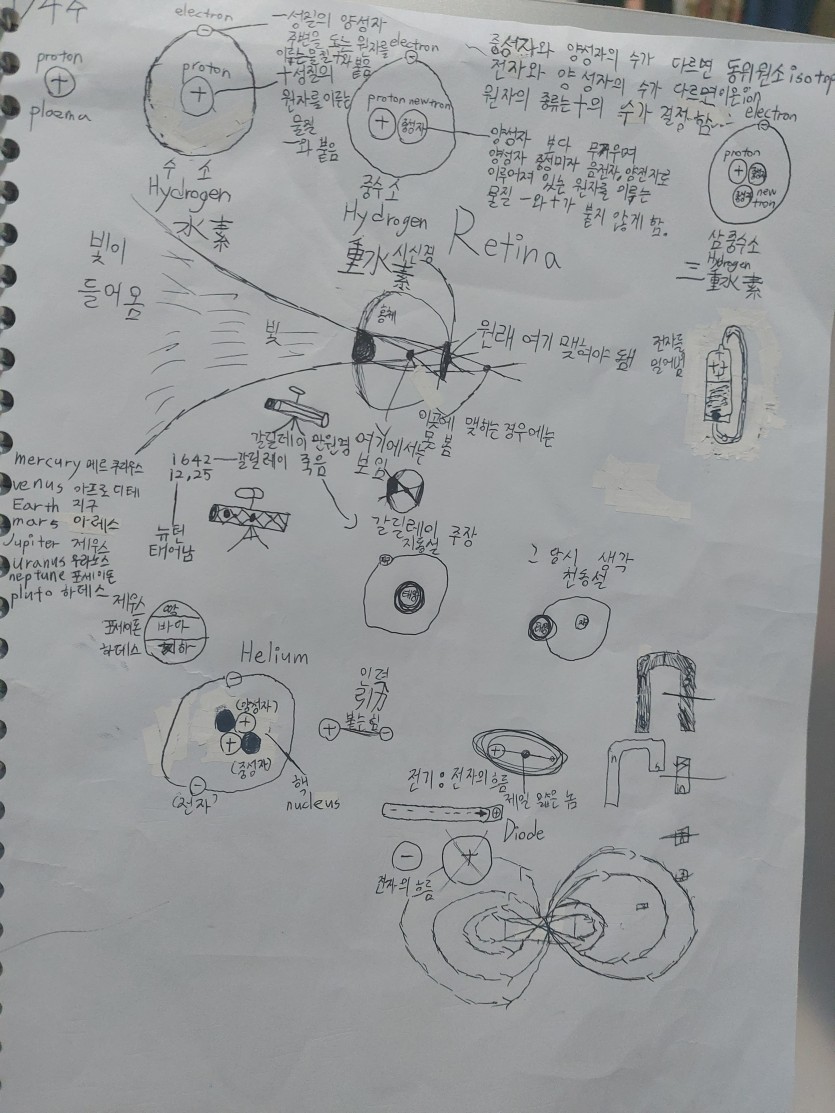 electron
proton
plazma
proton
수소
Hydrogen
水素
-성질의 양성자
주변을 도는 원자를
이루는 물질 +와 붙음
+성질의
원자를 이루는
물질
-와 붙음
electron
proton newtron
중성자
중수소
Hydrogen
重水素
중성자와 양성자의 수가 다르면 동위원소 isotop
전자와 양성자의 수가 다르면 이온 ion
원자의 종류는 +의 수가 결정함
양성자 보다 무거우며
이루어져 있는 원자를 이루는
물질 -와 +가 붙지 않게 함.
electron
proton
newtron
삼중수소
Hydrogen
三重水素
빛이
들어옴
빛
시신경
Retina
원래 여기 맺혀야 됨
이곳에 맺히는 경우에는
못 봄
여기에서는
보임
전자를
잃어버림
갈릴레이 망원경
1642 갈릴레이 죽음
12,25
뉴턴
태어남
mercury 메르쿠리우스
venus 아프로디테
Earth 지구
mars 아레스
Jupiter 제우스
uranus 우라노스
neptune 포세이돈
pluto 하데스
갈릴레이 주장
지동설
태양
그 당시 생각
천동설
태양
제우스 땅
포세이돈 바다
하데스 지하
Helium
(양성자)
(중성자)
(전자)
핵
nucleus
인력
引力
붙는 힘
전기 : 전자의 흐름
제일 얇은 놈
Diode
전자의 흐름
n
s